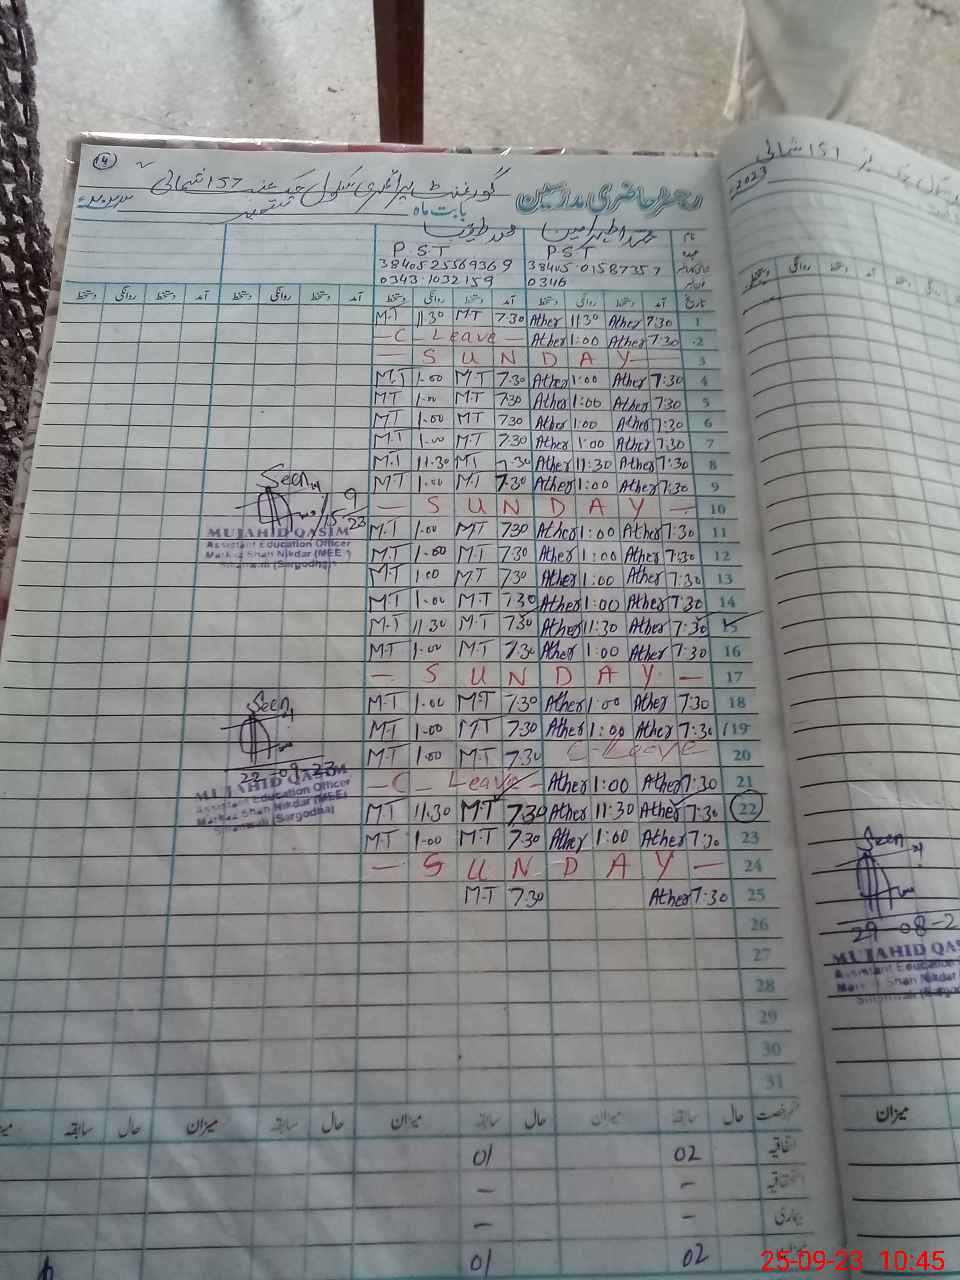 4
گورنمنٹ پرائمری سکول چک نمبر 157 شمالی
رجسٹر حاضری مدرسین
بابت ماہ ستمبر
محمد طیب محمد اطہر امین نام
P.S.T P.S.T عہدہ
38405 2556936 9 38405-0158735 7
0343-1032159 0346
دستخط روانگی دستخط آمد دستخط روانگی دستخط آمد دستخط روانگی دستخط آمد دستخط روانگی دستخط آمد تاریخ
M.T 11.30 M.T 7.30 Ather 11:30 Ather 7:30 1
C Leave Ather 1:00 Ather 7:30 2
SUNDAY 3
M.T 1.00 M.T 7.30 Ather 1:00 Ather 7:30 4
M.T 1.00 M.T 7.30 Ather 1:00 Ather 7:30 5
M.T 1.00 M.T 7.30 Ather 1:00 Ather 7:30 6
M.T 1.00 M.T 7.30 Ather 1:00 Ather 7:30 7
M.T 11.30 M.T 7.30 Ather 11:30 Ather 7:30 8
M.T 1.00 M.T 7.30 Ather 1:00 Ather 7:30 9
SUNDAY 10
M.T 1.00 M.T 7.30 Ather 1:00 Ather 7:30 11
M.T 1.00 M.T 7.30 Ather 1:00 Ather 7:30 12
M.T 1.00 M.T 7.30 Ather 1:00 Ather 7:30 13
M.T 1.00 M.T 7.30 Ather 1:00 Ather 7:30 14
M.T 11.30 M.T 7.30 Ather 11:30 Ather 7:30 15
M.T 1.00 M.T 7.30 Ather 1:00 Ather 7:30 16
SUNDAY 17
M.T 1.00 M.T 7.30 Ather 1:00 Ather 7:30 18
M.T 1.00 M.T 7.30 Ather 1:00 Ather 7:30 19
M.T 1.00 M.T 7.30 C-Leave 20
C Leave Ather 1:00 Ather 7:30 21
M.T 11.30 M.T 7.30 Ather 11:30 Ather 7:30 22
M.T 1.00 M.T 7.30 Ather 1:00 Ather 7:30 23
SUNDAY 24
M.T 7.30 Ather 7:30 25
26
27
28
29
30
31
میزان سابقہ حال میزان سابقہ حال میزان سابقہ حال میزان سابقہ حال قسم رخصت
01 02 اتفاقیہ
- -
- - بیماری
01 02 میزان
Seen
15-9-23
MUJAHID QASIM
Assistant Education Officer
Markaz Shah Nikdar (MEE)
Sillanwali (Sargodha)
Seen
22-09-23
MUJAHID QASIM
Assistant Education Officer
Markaz Shah Nikdar (MEE)
Sillanwali (Sargodha)
151 شمالی
2023
Seen
29-08-2
MUJAHID QAS
Assistant Education
Markaz Shah Nikdar
Sillanwali (Sargod
میزان
25-09-23 10:45